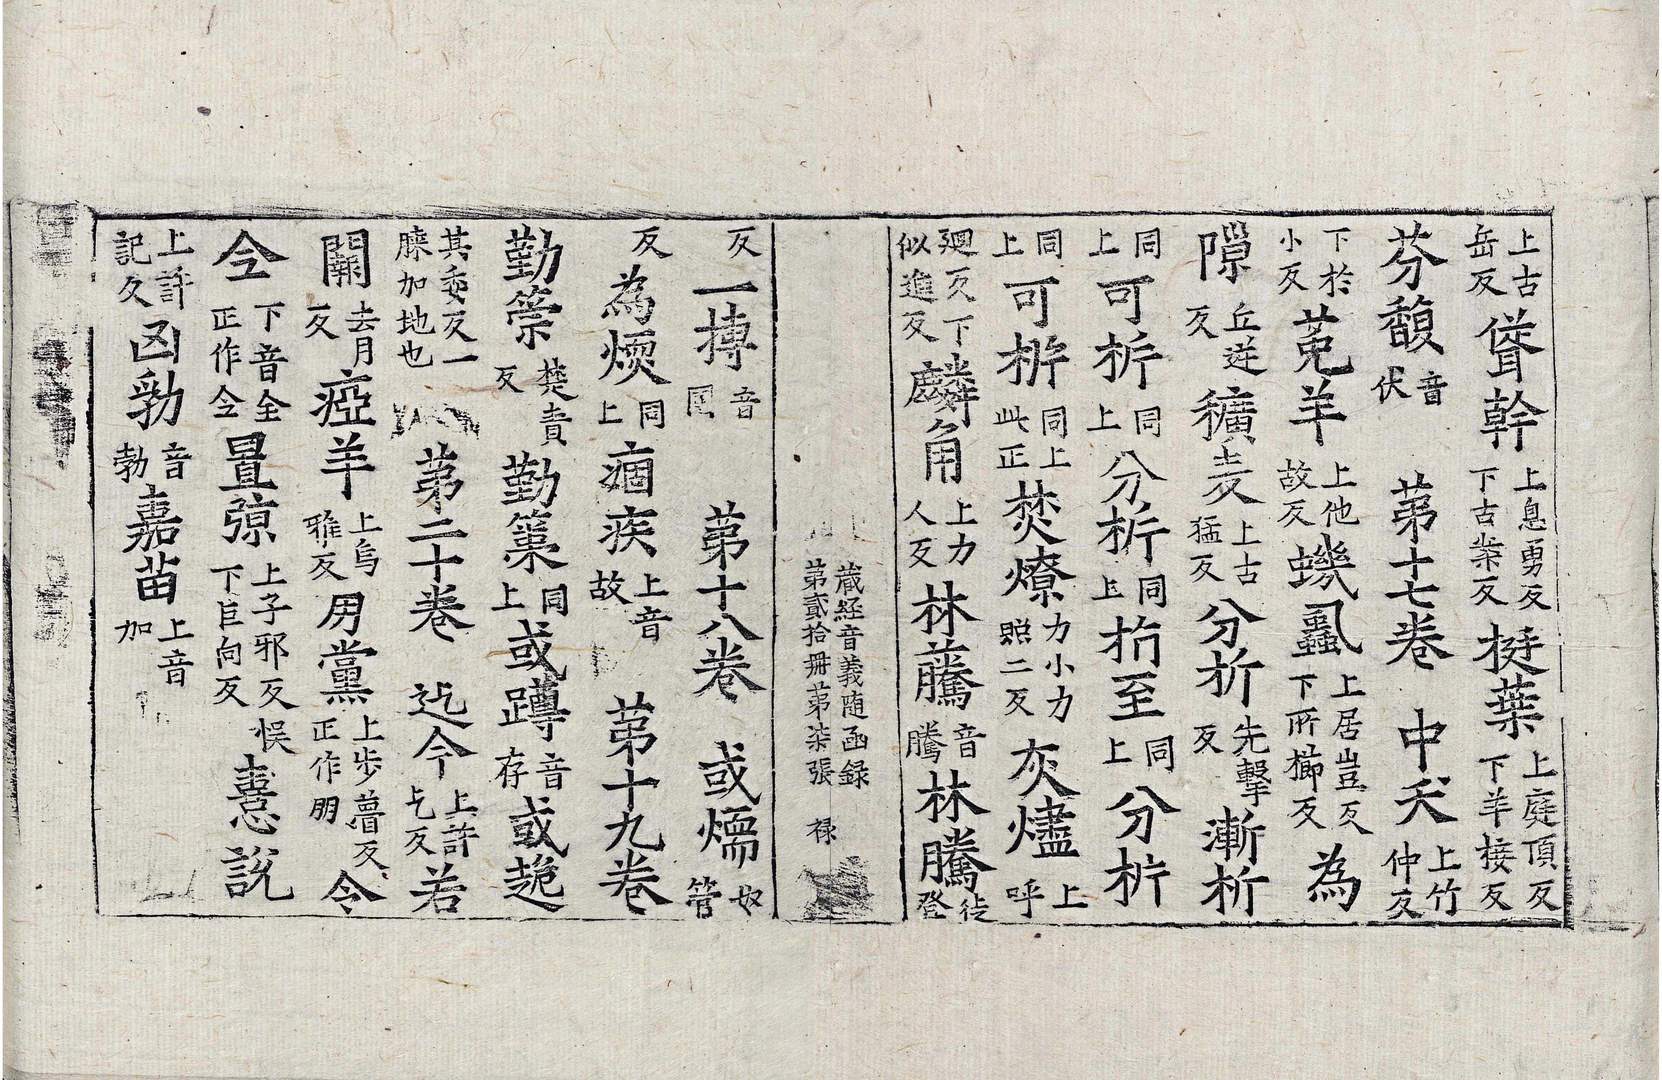 上古岳反聳幹上息勇反下古岸反挺葉上庭頂反下羊接反
芬馥音伏 第十七卷 中夭上竹仲反
下於小反菟羊上他故反蟣蝨上居豈反下所櫛反為
隙丘逆反穬麦上古猛反分析先擊反漸析
同上可析同上分析同上析至同上分析
同上可析同上此正焚燎力小力照二反灰燼上呼
廻反下似進反麟角上力人反林藤音騰林騰徒登
藏経音義随函録第貳拾冊第柒張 禄
反一摶音團 第十八卷 或煗奴管
反為煗同上痼疾上音故 第十九卷
勤策楚責反勤策同上或蹲音存或跪
其委反一䠒加地也 第二十卷 迄今上許乞反若
闕去月反瘂羊上烏雅反朋黨上步蕚反正作朋令
仝下音全正作仝罝弶上子邪反下巨向反悮憙說
上許記反凶勃音勃嘉苗上音加